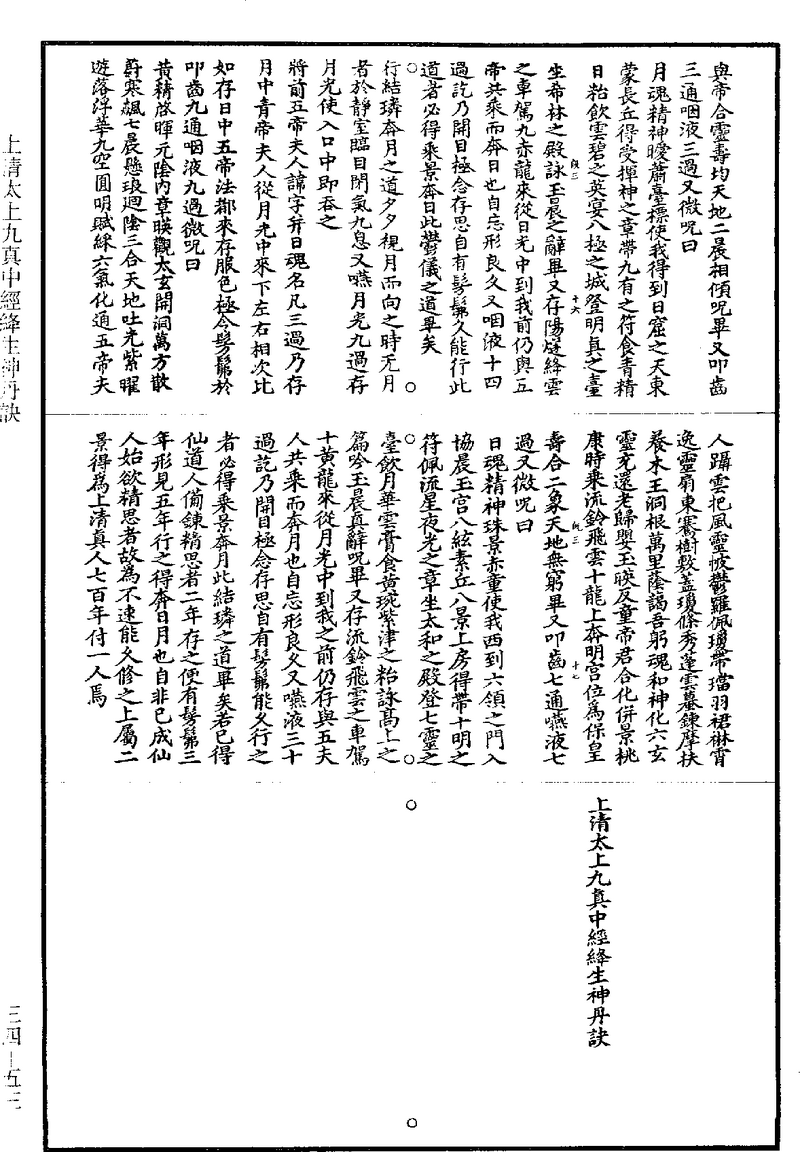 與帝合靈壽均天地二晨相傾呪畢又叩齒
三通咽液三過又微呪曰
月魂精神曖蕭臺標使我得到日窟之天東
蒙長丘得受揮神之章帶九有之符食青精
日粭飲雲碧之英宴八極之城登明真之臺
坐希林之殿詠玉晨之辭畢又存陽燧絳雲
之車駕九赤龍來從日光中到我前仍與五
帝共乘而奔日也自忘形良久又咽液十四
過訖乃開目極念存思自有髣髴久能行此
道者必得乘景奔日此鬱儀之道畢矣
行結璘奔月之道夕夕視月而向之時无月
者於靜室臨目閉氣九息又嚥月光九過存
月光使入口中即吞之
將前五帝夫人諱字并日魂名凡三過乃存
月中青帝夫人從月光中來下左右相次比
如存日中五帝法都來存服色極令髣髴於
叩齒九通咽液九過微呪曰
黃精啓暉元陰內章暎觀太玄開洞萬方散
蔚寒飆七晨懸琅迴陰三合天地吐光紫曜
遊落浮華九空圓明賦綵六氣化通五帝夫
人躡雲把風靈披鬱羅佩瓊帶璫羽裙綝霄
逸靈扇東騫樹敷蓋瓊條秀蓬雲蓋鍊摩扶
養木王洞根萬里蔭藹吾躬魂和神化六玄
靈充還老歸嬰玉暎反童帝君合化併景桃
康時乘流鈴飛雲十龍上奔明宮位為保皇
壽合二象天地無窮畢又叩齒七通嚥液七
過又微呪曰
日魂精神珠景赤童使我西到六領之門入
協晨玉宮八絃素丘八景上房得帶十明之
符佩流星夜光之章坐太和之殿登七靈之
臺飲月華雲膏食黃琬紫津之粭詠高上之
篇吟玉晨真辭呪畢又存流鈴飛雲之車駕
十黃龍來從月光中到我之前仍存與五夫
人共乘而奔月也自忘形良久又嚥液三十
過訖乃開目極念存思自有髣髴能久行之
者必得乘景奔月此結璘之道畢矣若已得
仙道人偹鍊精思者二年存之便有髣髴三
年形見五年行之得奔日月也自非已成仙
人始欲精思者故為不速能久修之上屬二
景得為上清真人七百年付一人焉
上清太上九真中經絳生神丹訣
上清太上九真中經絳生神丹訣
三四—五三